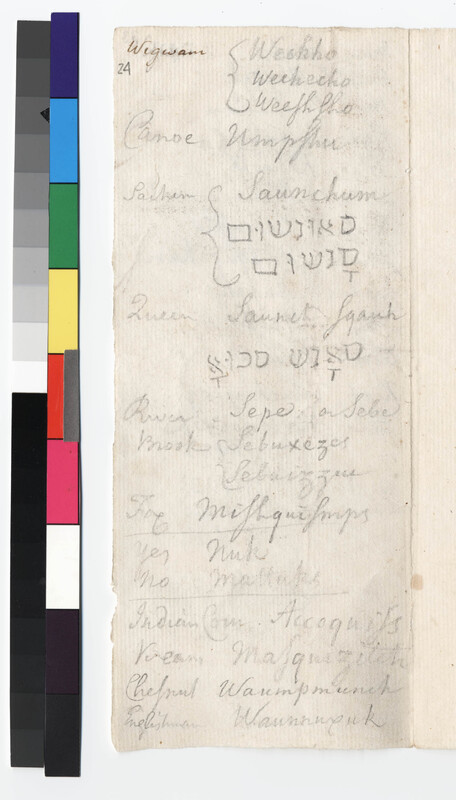 Wigwam Weekho
24 Wecheeko
Weeshsho
Canoe Umpshu
Sachem Saunchum
סאונשום
סָנשום
Queen Saunct Sqauh
סאָנש סכוּאָ
River Sepe or Sebe
Brook Sebuxezes
Sebuizzue
Fox Mishquismps
Yes Nuk
No Mattuks
Indian Corn Accoquiss
Masquizitch
Chesnut Waumpmunch
Englishman Waunnuxuk